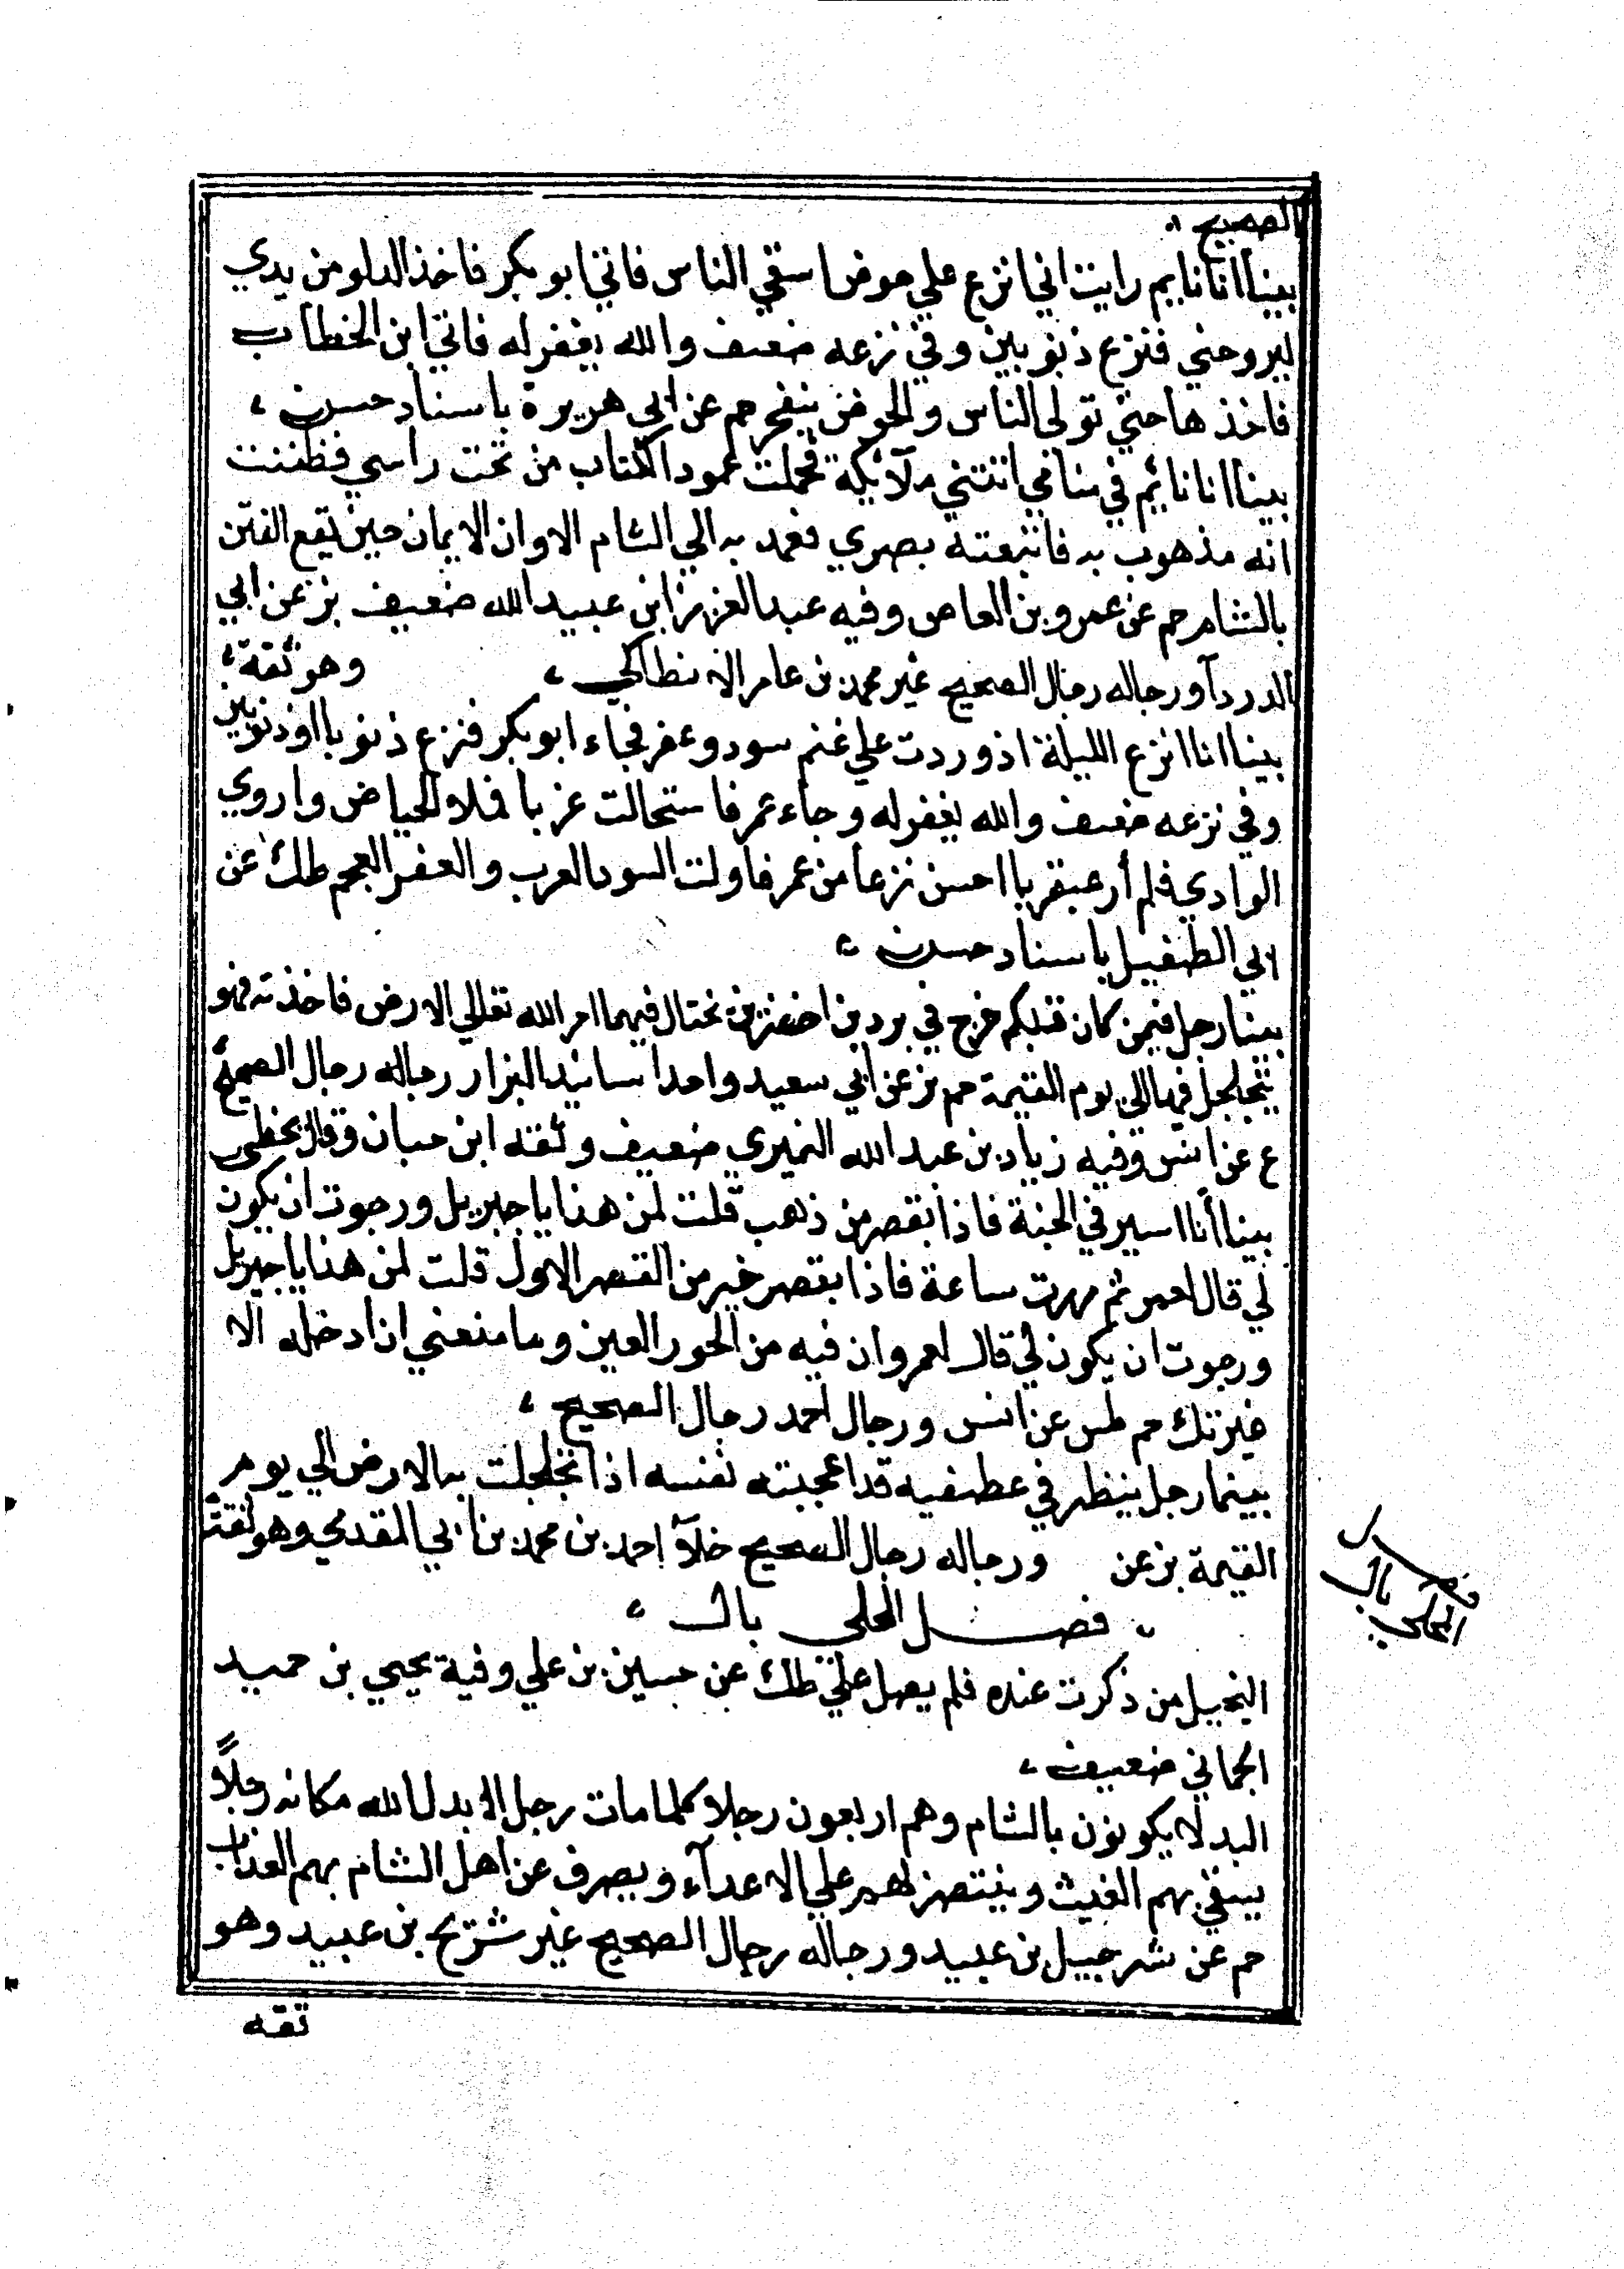 الصحيح
بينا انا نايم رايت اني انزع علي حوض اسقي الناس فاتي ابو بكر فاخذ الدلو من يدي
ليروحني فنزع ذنوبين وفي نزعه ضعف والله يغفر له فاتي ابن الخطاب
فاخذها حتي تولي الناس والحوض يتفجر حم عن ابي هريرة باسناد حسن
بينا انا نائم في منامي اتتني ملآئكة فحملت عمود الكتاب من تحت راسي فظننت
انه مذهوب به فاتبعته بصري فعمد به الي الشام الا وان الايمان حين تقع الفتن
بالشام حم عن عمرو بن العاص وفيه عبد العزيز ابن عبيد الله ضعيف بز عن ابي
الدردآ ورجاله رجال الصحيح غير محمد بن عامر الانطاكي وهو ثقة
بينا انا انزع الليلة اذ وردت علي غنم سود وعفر فجاء ابو بكر فنزع ذنوبا او ذنوبين
وفي نزعه ضعف والله يغفر له وجاء عمر فاستحالت غربا فملاء الحياض واروي
الوادي فلم أر عبقريا احسن نزعا من عمر فاولت السود العرب والعفر العجم طك عن
ابي الطفيل باسناد حسن
بينا رجل فيمن كان قبلكم خرج في بردين اخضرين يختال فيهما امر الله تعالي الارض فاخذته فهو
يتجلجل فيها الي يوم القيمة حم بز عن ابي سعيد واحد اسانيد البزار رجاله رجال الصحيح
ع عن انس وفيه زياد بن عبد الله النميري ضعيف وثقه ابن حبان وقال يخطي
بينا أنا اسير في الجنة فاذا بقصر من ذهب قلت لمن هذا يا جبريل ورجوت ان يكون
لي قال لعمر ثم سرت ساعة فاذا بقصر خير من القصر الاول قلت لمن هذا يا جبريل
ورجوت ان يكون لي قال لعمر وان فيه من الحور العين وما منعني ان ادخله الا
غيرتك حم طس عن انس ورجال احمد رجال الصحيح
بينما رجل ينظر في عطفيه قد اعجبته نفسه اذ تجلجلت به الارض الي يوم
القيمة بز عن ورجاله رجال الصحيح خلآ احمد بن محمد بن ابي المقدمي وهو ثقة
فصل المحلي بال
البخيل من ذكرت عنده فلم يصل علي طك عن حسين بن علي وفية يحيي بن حميد
الحماني ضعيف
البدلا يكونون بالشام وهم اربعون رجلا كلما مات رجل الابدل الله مكانه رجلاً
يسقي بهم الغيث وينتصر لهم علي الاعدآء ويصرف عن اهل الشام بهم العذاب
حم عن شرحبيل بن عبيد ورجاله رجال الصحيح غير شريح بن عبيد وهو
ثقه
فصل
المحلي بال